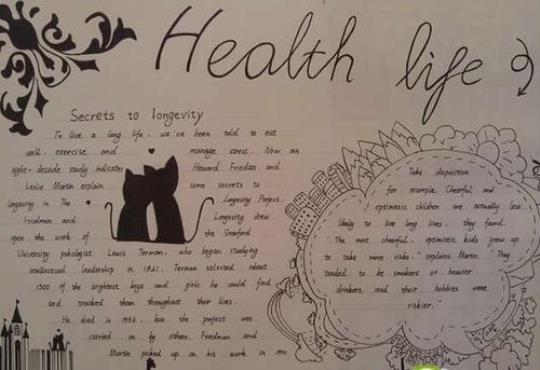 Health life
Secrets to longevity
To live a long life, we've been told to eat
well, exercise and manage stress. Now an
eight-decade study indicates Howard Friedman and
Leslie Martin explain some secrets to
longevity in The Longevity Project.
Friedman and Longevity drew
upon the work of the Stanford
University Louis Terman, who began studying
intellectual leadership in 1921. Terman selected about
1500 of the brightest boys and girls he could find
and tracked them throughout their lives.
He died in 1956, but the project was
carried on by others. Friedman and
Martin picked up on his work in
Take disposition
for example. Cheerful and
optimistic children are actually less
likely to live long lives, they found.
The most cheerful, optimistic kids grew up
to take more risks." explains Martin. "They
tended to be smokers or heavier
drinkers, and their hobbies were
riskier."